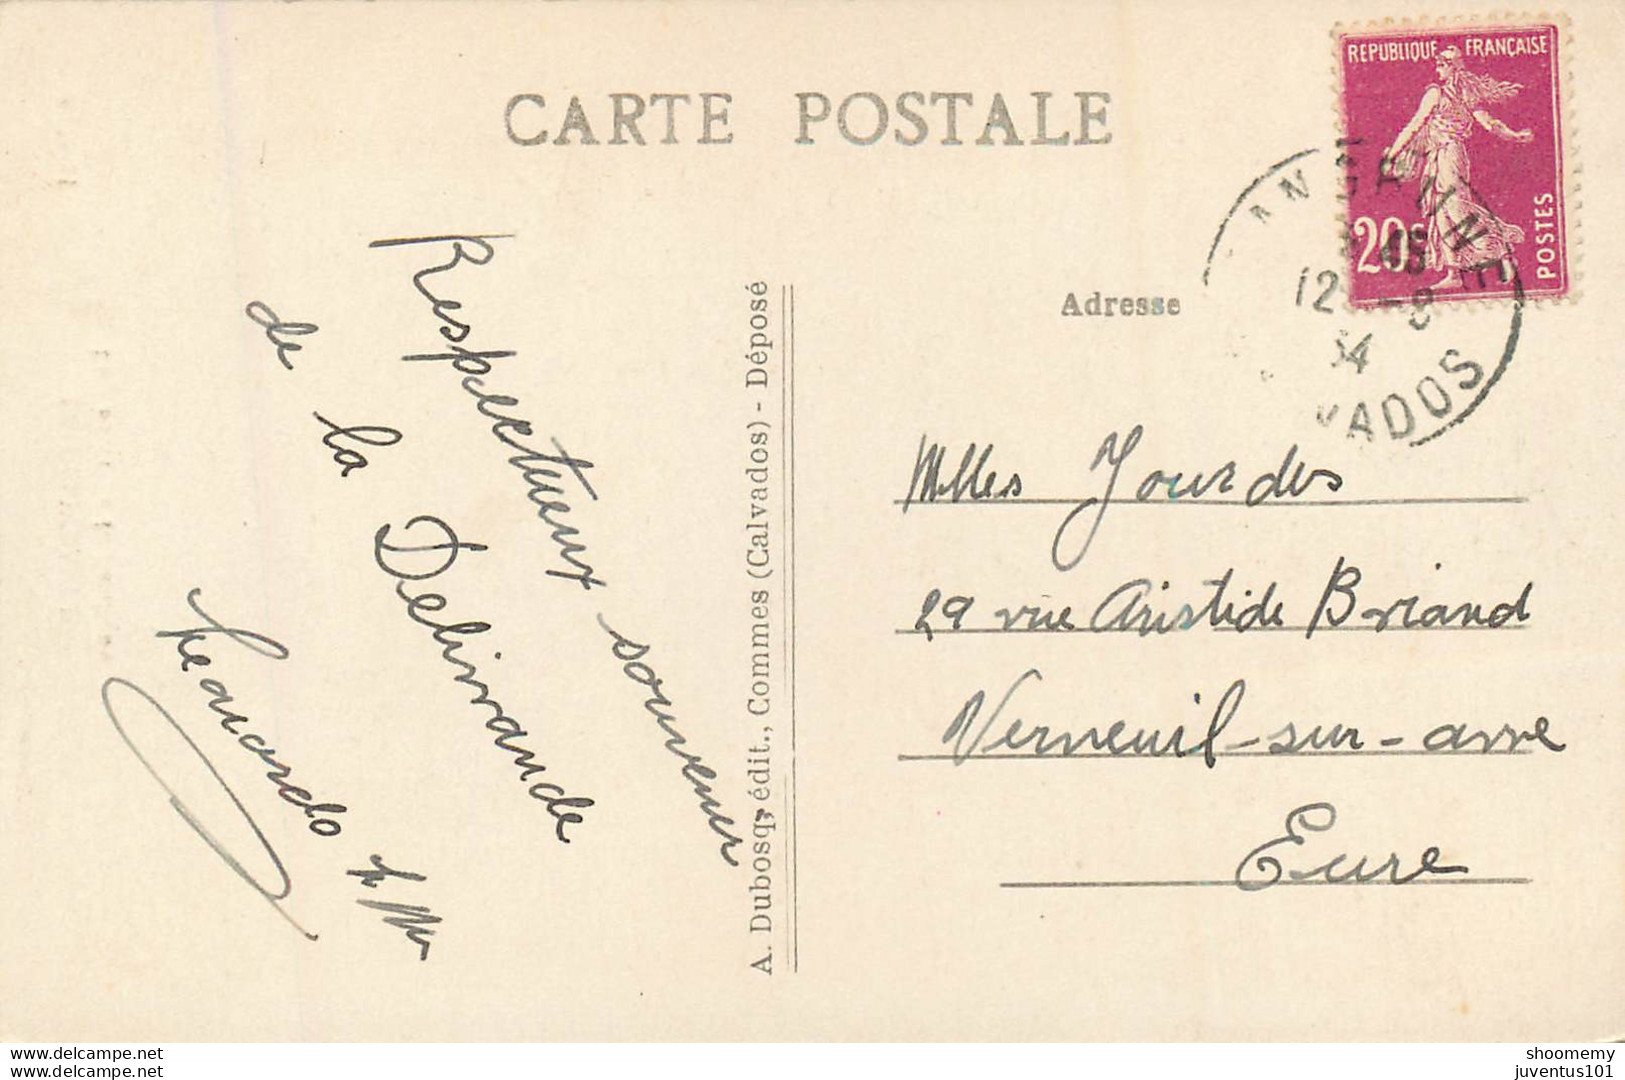 CARTE POSTALE
REPUBLIQUE FRANÇAISE
20c
POSTES
ANGRUNE
12 -8
34
VADOS
Adresse
Respectueux souvenir
de la Delivrande
A. Dubosq, édit., Commes (Calvados) - Déposé
Mlles Jourdes
29 rue Aristide Briand
Verneuil-sur-avre
Eure
www.delcampe.net
www.delcampe.net
shoomemy
juventus101